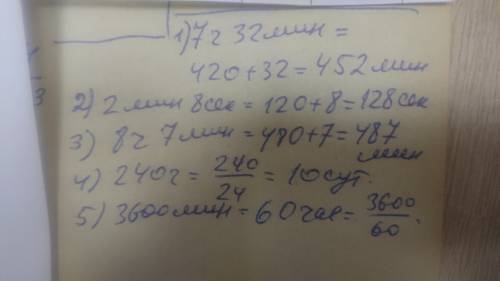 1) 7ч 32мин =
420+32=452мин
2) 2мин 8сек=120+8=128сек
3) 8ч 7мин=480+7=487
мин
4) 240ч=240/24=10сут.
5) 3600мин=60час=3600/60.
3